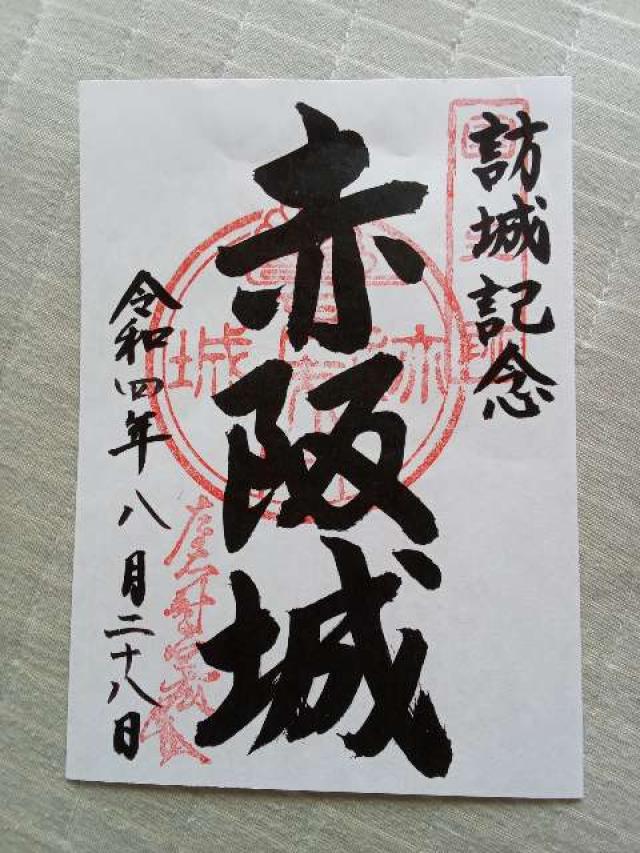 訪城記念
赤阪城
令和四年 八月二十八日